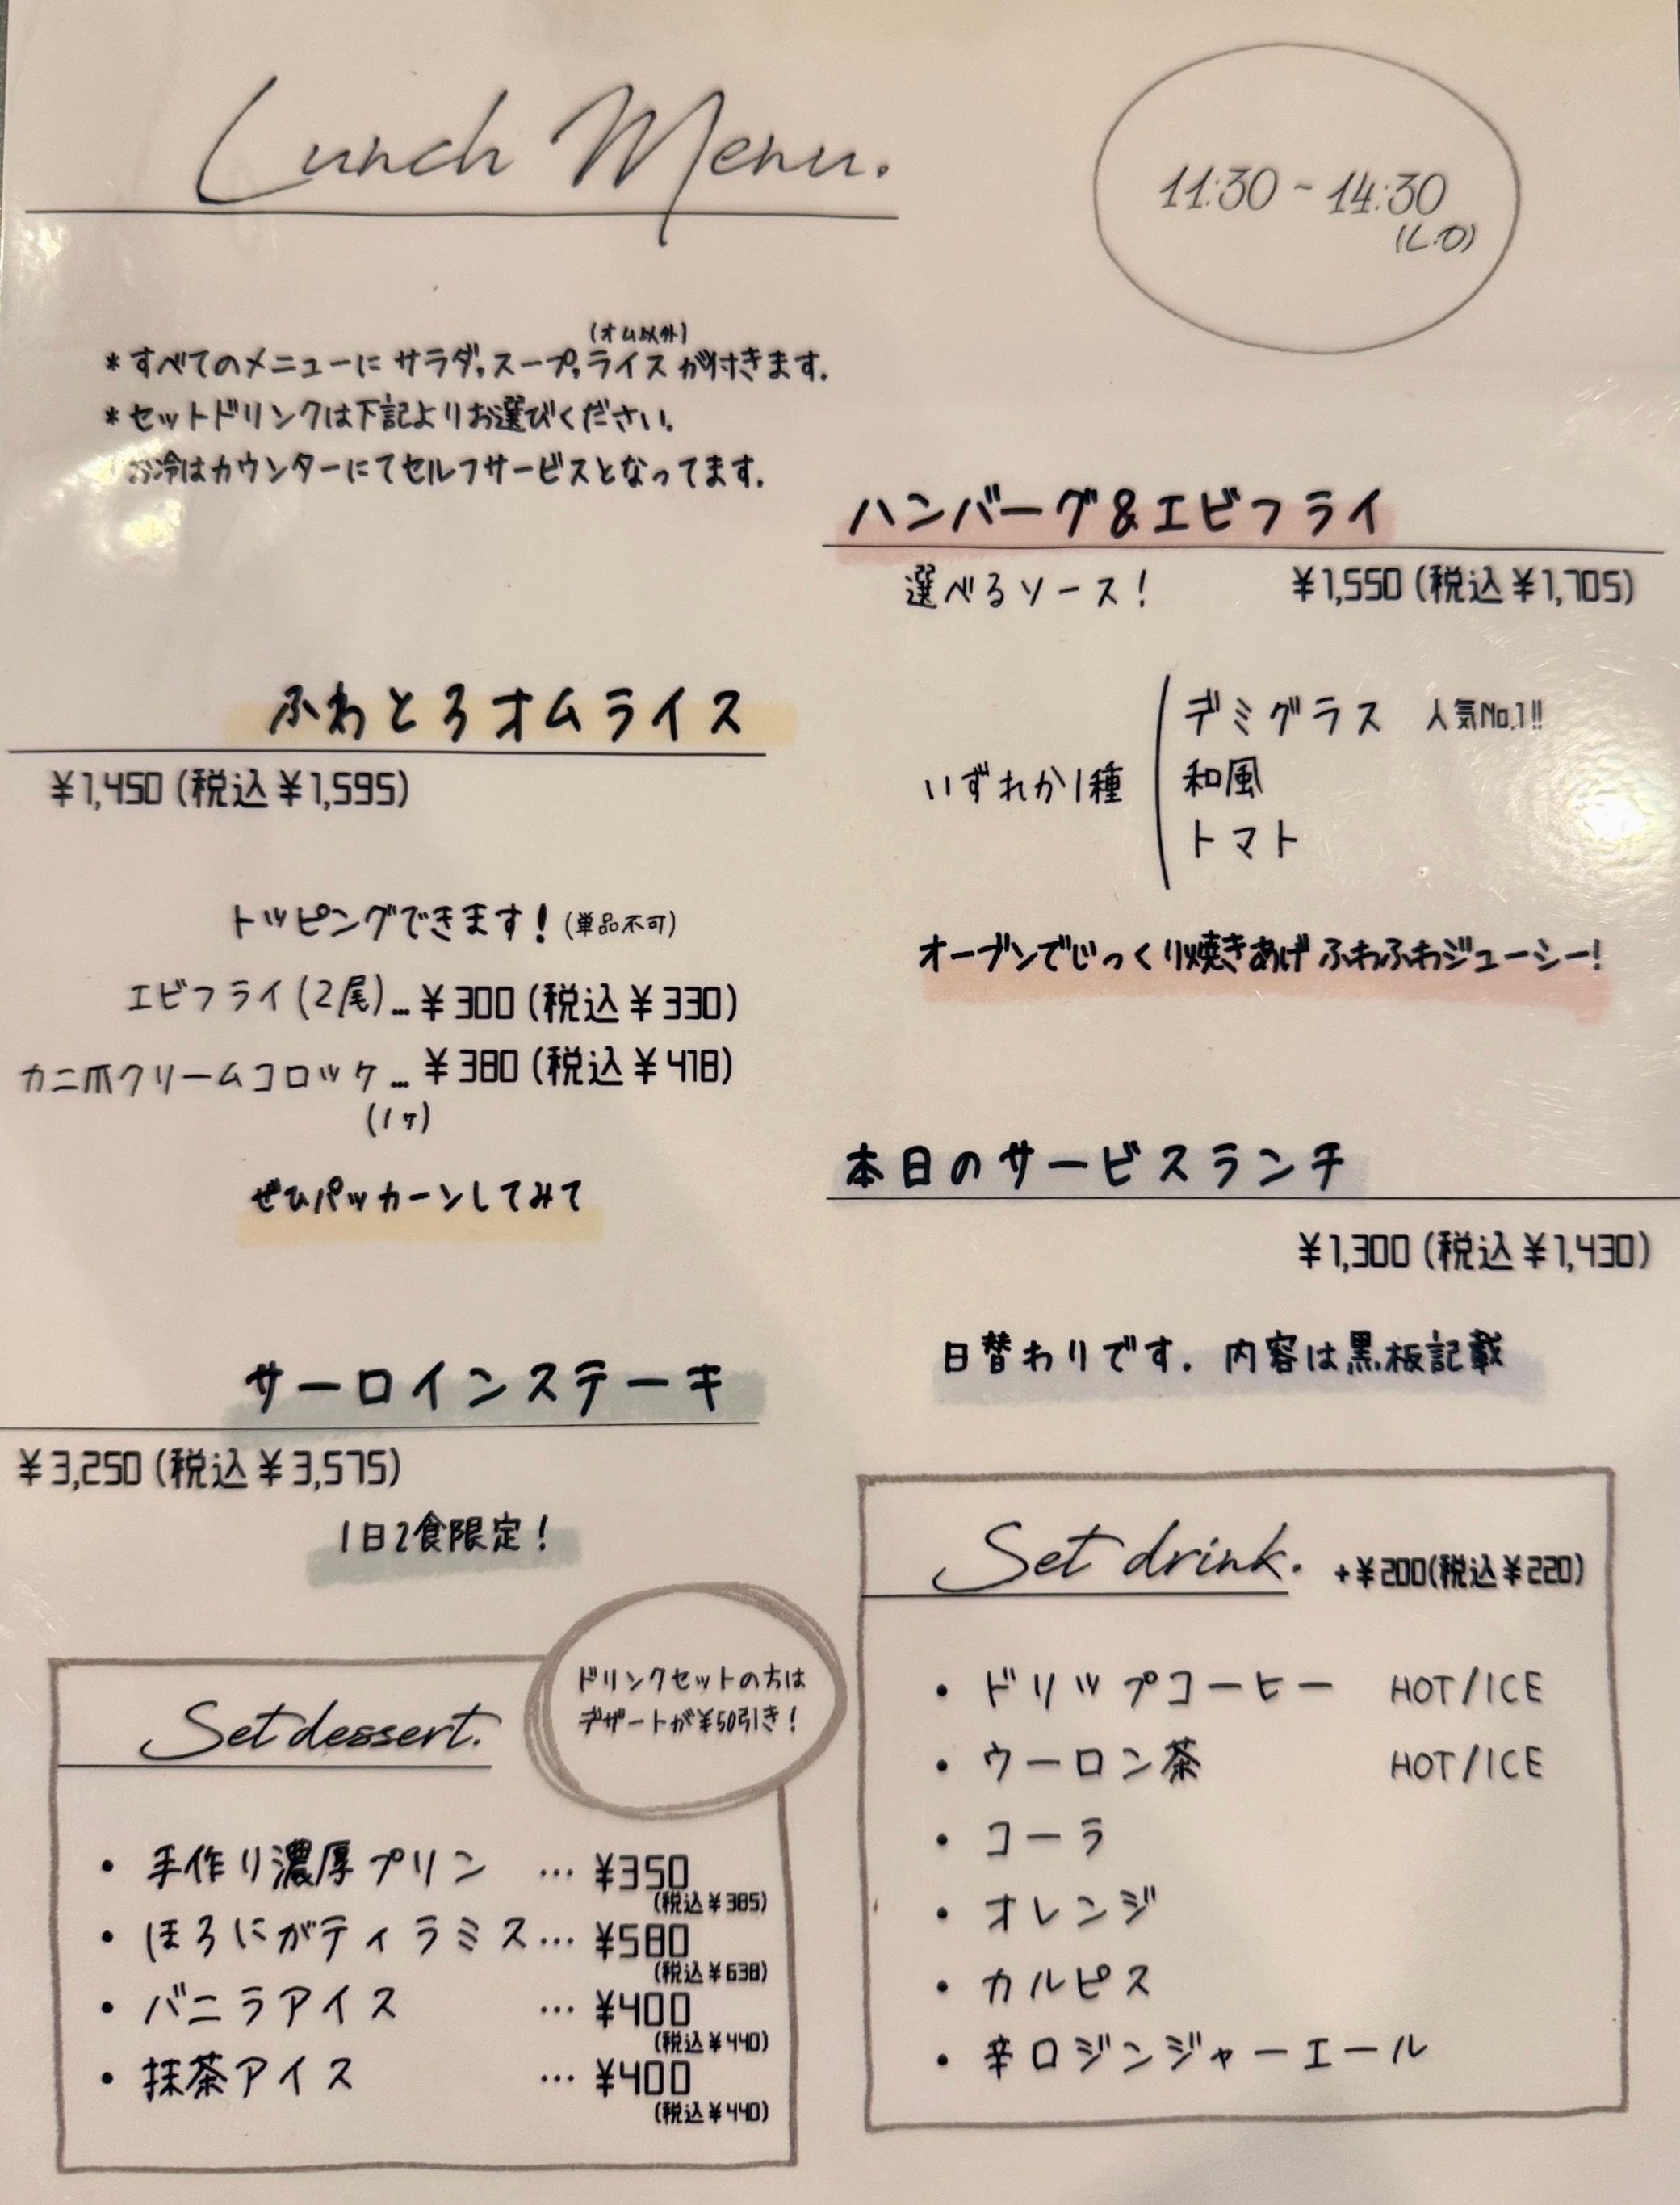 Lunch Menu.
11:30 ~ 14:30
(L.O)
(オム以外)
*すべてのメニューにサラダ,スープ,ライスが付きます.
*セットドリンクは下記よりお選びください.
お冷はカウンターにてセルフサービスとなってます.
ふわとろオムライス
¥1,450 (税込¥1,595)
トッピングできます!(単品不可)
エビフライ(2尾)…¥300 (税込¥330)
カニ爪クリームコロッケ…¥380 (税込¥418)
(1ヶ)
ぜひパッカーンしてみて
サーロインステーキ
¥3,250 (税込¥3,575)
1日2食限定!
ハンバーグ&エビフライ
選べるソース! ¥1,550 (税込¥1,705)
デミグラス 人気No.1!!
いずれか1種 和風
トマト
オーブンでじっくり焼きあげ ふわふわジューシー!
本日のサービスランチ
¥1,300 (税込¥1,430)
日替わりです. 内容は黒板記載
Set dessert.
ドリンクセットの方は
デザートが¥50引き!
• 手作り濃厚プリン … ¥350
(税込¥385)
• ほろにがティラミス… ¥580
(税込¥638)
• バニラアイス … ¥400
(税込¥440)
• 抹茶アイス … ¥400
(税込¥440)
Set drink. +¥200(税込¥220)
• ドリップコーヒー HOT/ICE
• ウーロン茶 HOT/ICE
• コーラ
• オレンジ
• カルピス
• 辛口ジンジャーエール